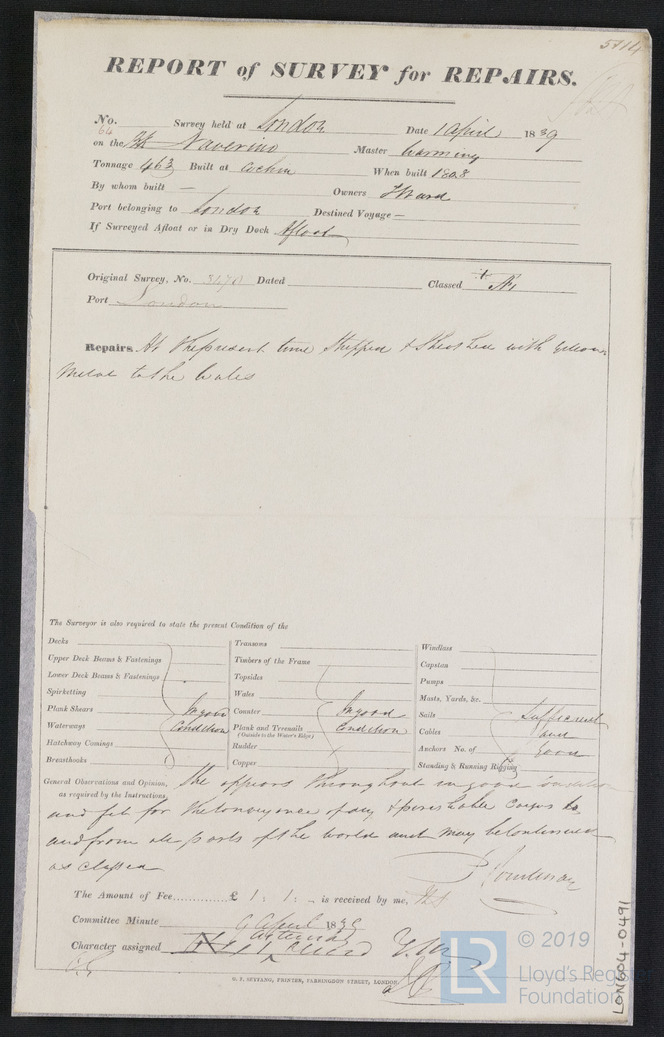 REPORT of SURVEY for REPAIRS.
No. 64 Survey held at London Date 1 April 1839
on the Navarino Master Warming
Tonnage 463 Built at Cochin When built 1808
By whom built — Owners Ward
Port belonging to London Destined Voyage —
If Surveyed Afloat or in Dry Dock Afloat
Original Survey, No. Dated Classed Æ1
Port London
Repairs. At the present time Stripped & Sheathed with yellow
Metal to the Wales
The Surveyor is also required to state the present Condition of the
Decks
Upper Deck Beams & Fastenings
Lower Deck Beams & Fastenings
Spirketting
Plank Shears In good
Waterways Condition
Hatchway Comings
Breasthooks
Transoms
Timbers of the Frame
Topsides
Wales
Counter In good
Plank and Treenails Condition
(Outside to the Water's Edge)
Rudder
Copper
Windlass
Capstan
Pumps
Masts, Yards, &c.
Sails Sufficient
Cables and
Anchors No. of good
Standing & Running Rigging
General Observations and Opinion, She appears throughout in good Condition
as required by the Instructions.
and fit for the conveyance of dry & perishable Cargo to
and from all parts of the world and may be Continued
as Classed
The Amount of Fee £ 1 : 1 : - is received by me,
Committee Minute 6 April 1839
Character assigned
G. F. SEYFANG, PRINTER, FARRINGDON STREET, LONDON
LR © 2019
Lloyd's Register
Foundation
LON604-0491